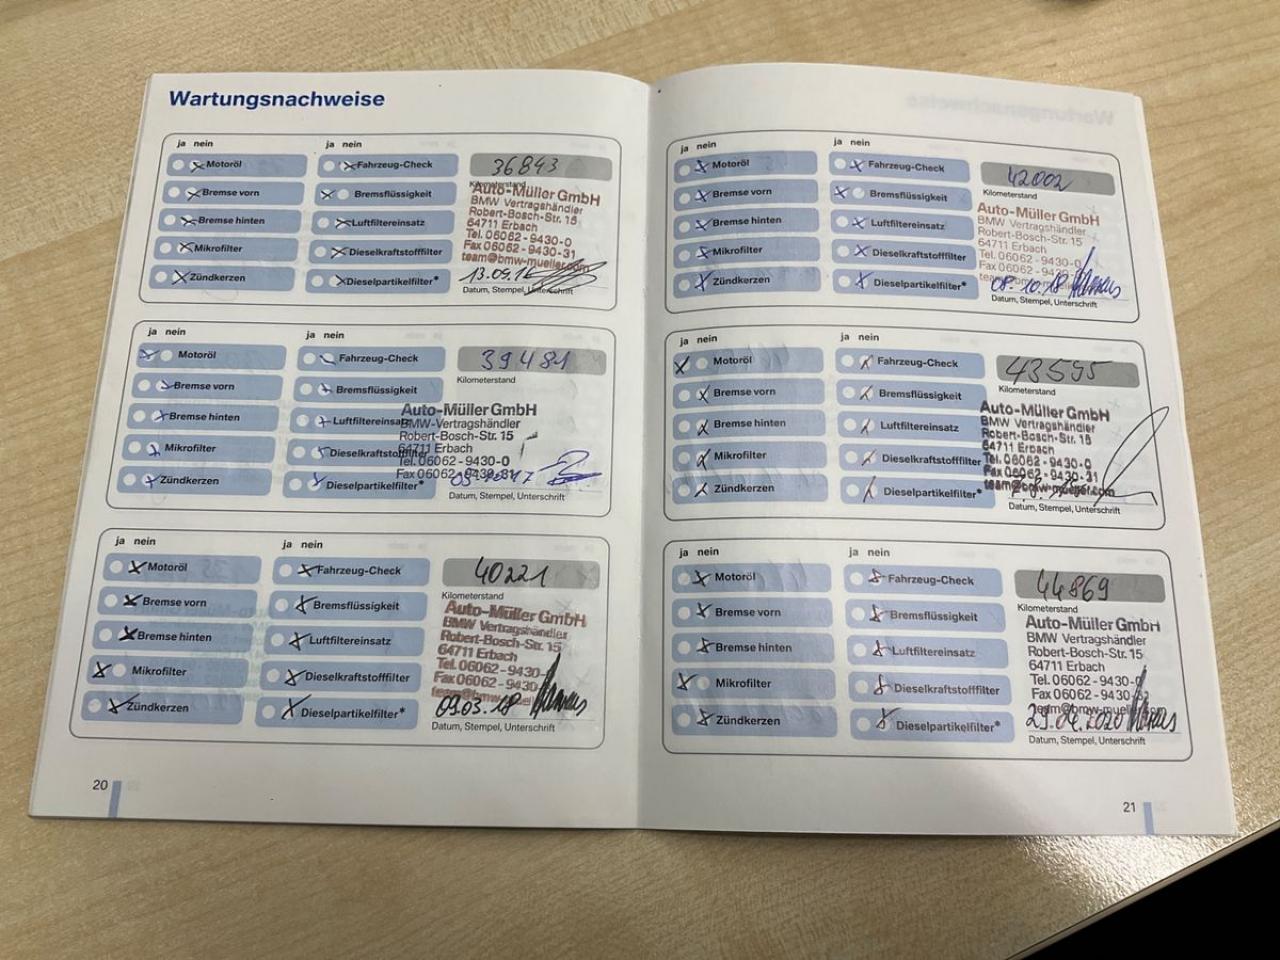 Wartungsnachweise
ja nein
ja nein
Motoröl
Fahrzeug-Check
36843
Kilometerstand
Bremse vorn
Bremsflüssigkeit
Bremse hinten
Luftfiltereinsatz
Mikrofilter
Dieselkraftstofffilter
Zündkerzen
Dieselpartikelfilter*
Auto-Müller GmbH
BMW Vertragshändler
Robert-Bosch-Str. 15
64711 Erbach
Tel. 06062-9430-0
Fax 06062-9430-31
team@bmw-mueller.com
13.09.16
Datum, Stempel, Unterschrift
ja nein
ja nein
Motoröl
Fahrzeug-Check
39481
Kilometerstand
Bremse vorn
Bremsflüssigkeit
Bremse hinten
Luftfiltereinsatz
Mikrofilter
Dieselkraftstofffilter
Zündkerzen
Dieselpartikelfilter*
Auto-Müller GmbH
BMW-Vertragshändler
Robert-Bosch-Str. 15
64711 Erbach
Tel. 06062-9430-0
Fax 06062-9430-31
Datum, Stempel, Unterschrift
ja nein
ja nein
Motoröl
Fahrzeug-Check
40221
Kilometerstand
Bremse vorn
Bremsflüssigkeit
Bremse hinten
Luftfiltereinsatz
Mikrofilter
Dieselkraftstofffilter
Zündkerzen
Dieselpartikelfilter*
Auto-Müller GmbH
BMW Vertragshändler
Robert-Bosch-Str. 15
64711 Erbach
Tel. 06062-9430-
Fax 06062-9430-
09.03.18
Datum, Stempel, Unterschrift
20
ja nein
ja nein
Motoröl
Fahrzeug-Check
42002
Kilometerstand
Bremse vorn
Bremsflüssigkeit
Bremse hinten
Luftfiltereinsatz
Mikrofilter
Dieselkraftstofffilter
Zündkerzen
Dieselpartikelfilter*
Auto-Müller GmbH
BMW Vertragshändler
Robert-Bosch-Str. 15
64711 Erbach
Tel. 06062-9430-0
Fax 06062-9430
08.10.18
Datum, Stempel, Unterschrift
ja nein
ja nein
Motoröl
Fahrzeug-Check
43595
Kilometerstand
Bremse vorn
Bremsflüssigkeit
Bremse hinten
Luftfiltereinsatz
Mikrofilter
Dieselkraftstofffilter
Zündkerzen
Dieselpartikelfilter*
Auto-Müller GmbH
BMW Vertragshändler
Robert-Bosch-Str. 15
64711 Erbach
Tel. 06062-9430-0
Fax 06062-9430-31
team@bmw-mueller.com
Datum, Stempel, Unterschrift
ja nein
ja nein
Motoröl
Fahrzeug-Check
44869
Kilometerstand
Bremse vorn
Bremsflüssigkeit
Bremse hinten
Luftfiltereinsatz
Mikrofilter
Dieselkraftstofffilter
Zündkerzen
Dieselpartikelfilter*
Auto-Müller GmbH
BMW Vertragshändler
Robert-Bosch-Str. 15
64711 Erbach
Tel. 06062-9430-
Fax 06062-9430-
team@bmw-mueller.com
29.04.2020
Datum, Stempel, Unterschrift
21